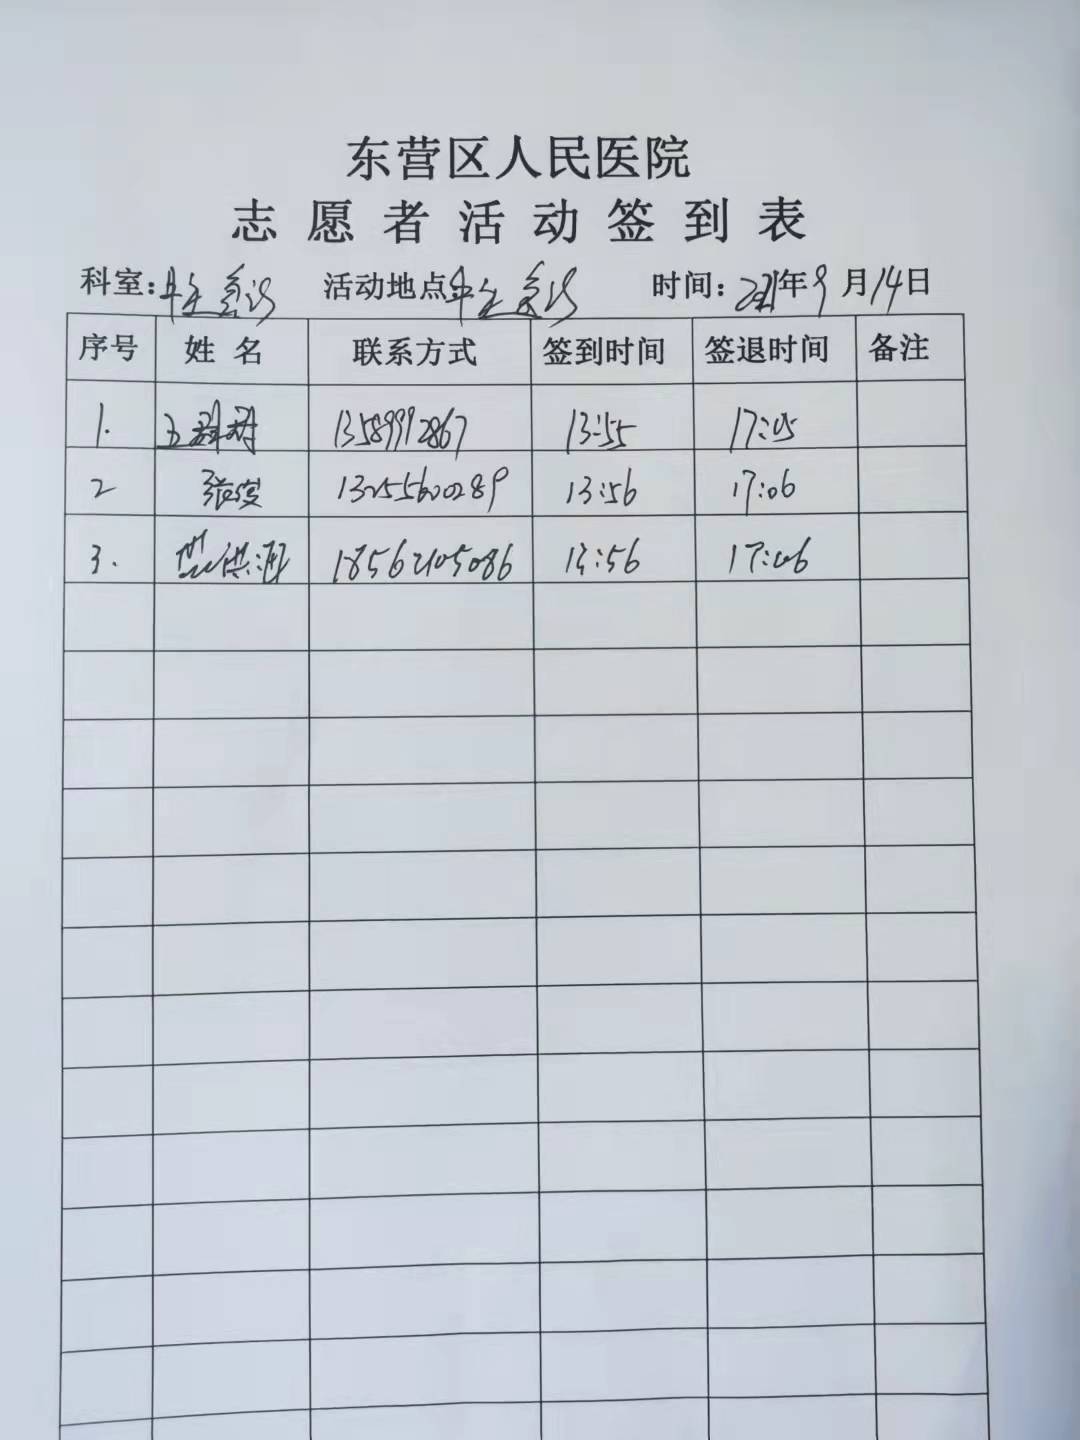 东营区人民医院
志愿者活动签到表
科室: 活动地点: 时间: 2021年9月14日
序号 姓名 联系方式 签到时间 签退时间 备注
1. 13589992867 13:55 17:05
2 张俊 13255600289 13:56 17:06
3. 18562105086 13:56 17:06